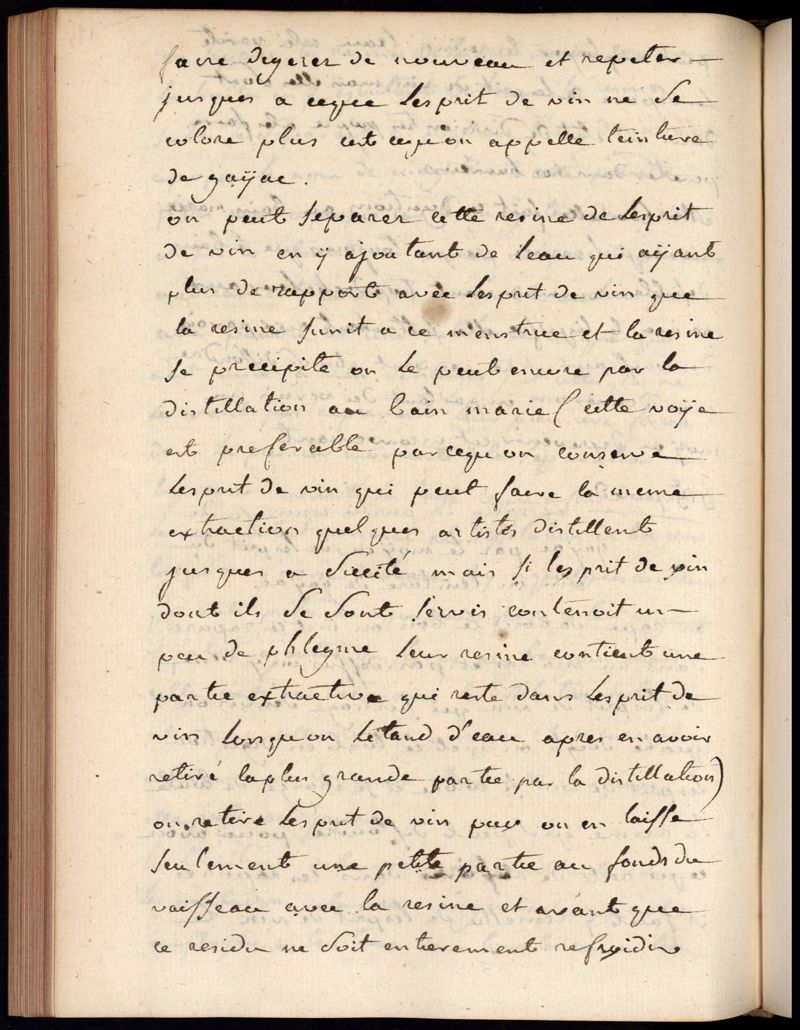 faire digerer de nouveau et repeter
jusques a ceque Lesprit de vin ne Se
colore plus cest cequon appelle teinture
de gaÿac.
on peut Separer cette resine de Lesprit
de vin en ÿ ajoutant de Leau qui aÿant
plus de rapports avec Lesprit de vin que
la resine sunit a ce menstrue et la resine
se precipite on Le peut encore par la
distillation au bain marie (cette voÿe
est preferable parcequon conserve
Lesprit de vin qui peut faire la meme
extraction quelques artistes distillent
jusques a Siccité mais si lesprit de vin
dont ils Se Sont Servis contenoit un
peu de phlegme Leur resine contient une
partie extractive qui reste dans Lesprit de
vin Lorsquon Letend d'eau apres en avoir
retiré la plus grande partie par la distillation)
on retire Lesprit de vin on en laisse
Seulement une petite partie au fonds du
vaisseau avec la resine et avant que
ce residu ne Soit entierement refroidir